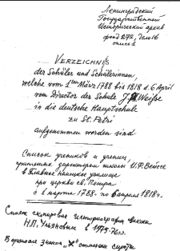 Ленинградский
Государственный
Исторический архив
фонд 272, дело 16
опись 2
VERZEICHNIS
der Schüler und Schülerinnen,
welche vom 1ten März 1788 bis 1818 d. 6 April
vom Director der Schule J. Ph. Weiße
in die deutsche Hauptschule
zu St. Petri
aufgenommen worden sind
Список учеников и учениц,
принятых директором школы И.Ф. Вейсе
в Главное немецкое училище
при церкви св. Петра
с 1 марта 1788 по 6 апреля 1818 г.
Список скопирован
Н.П. в 1975 году